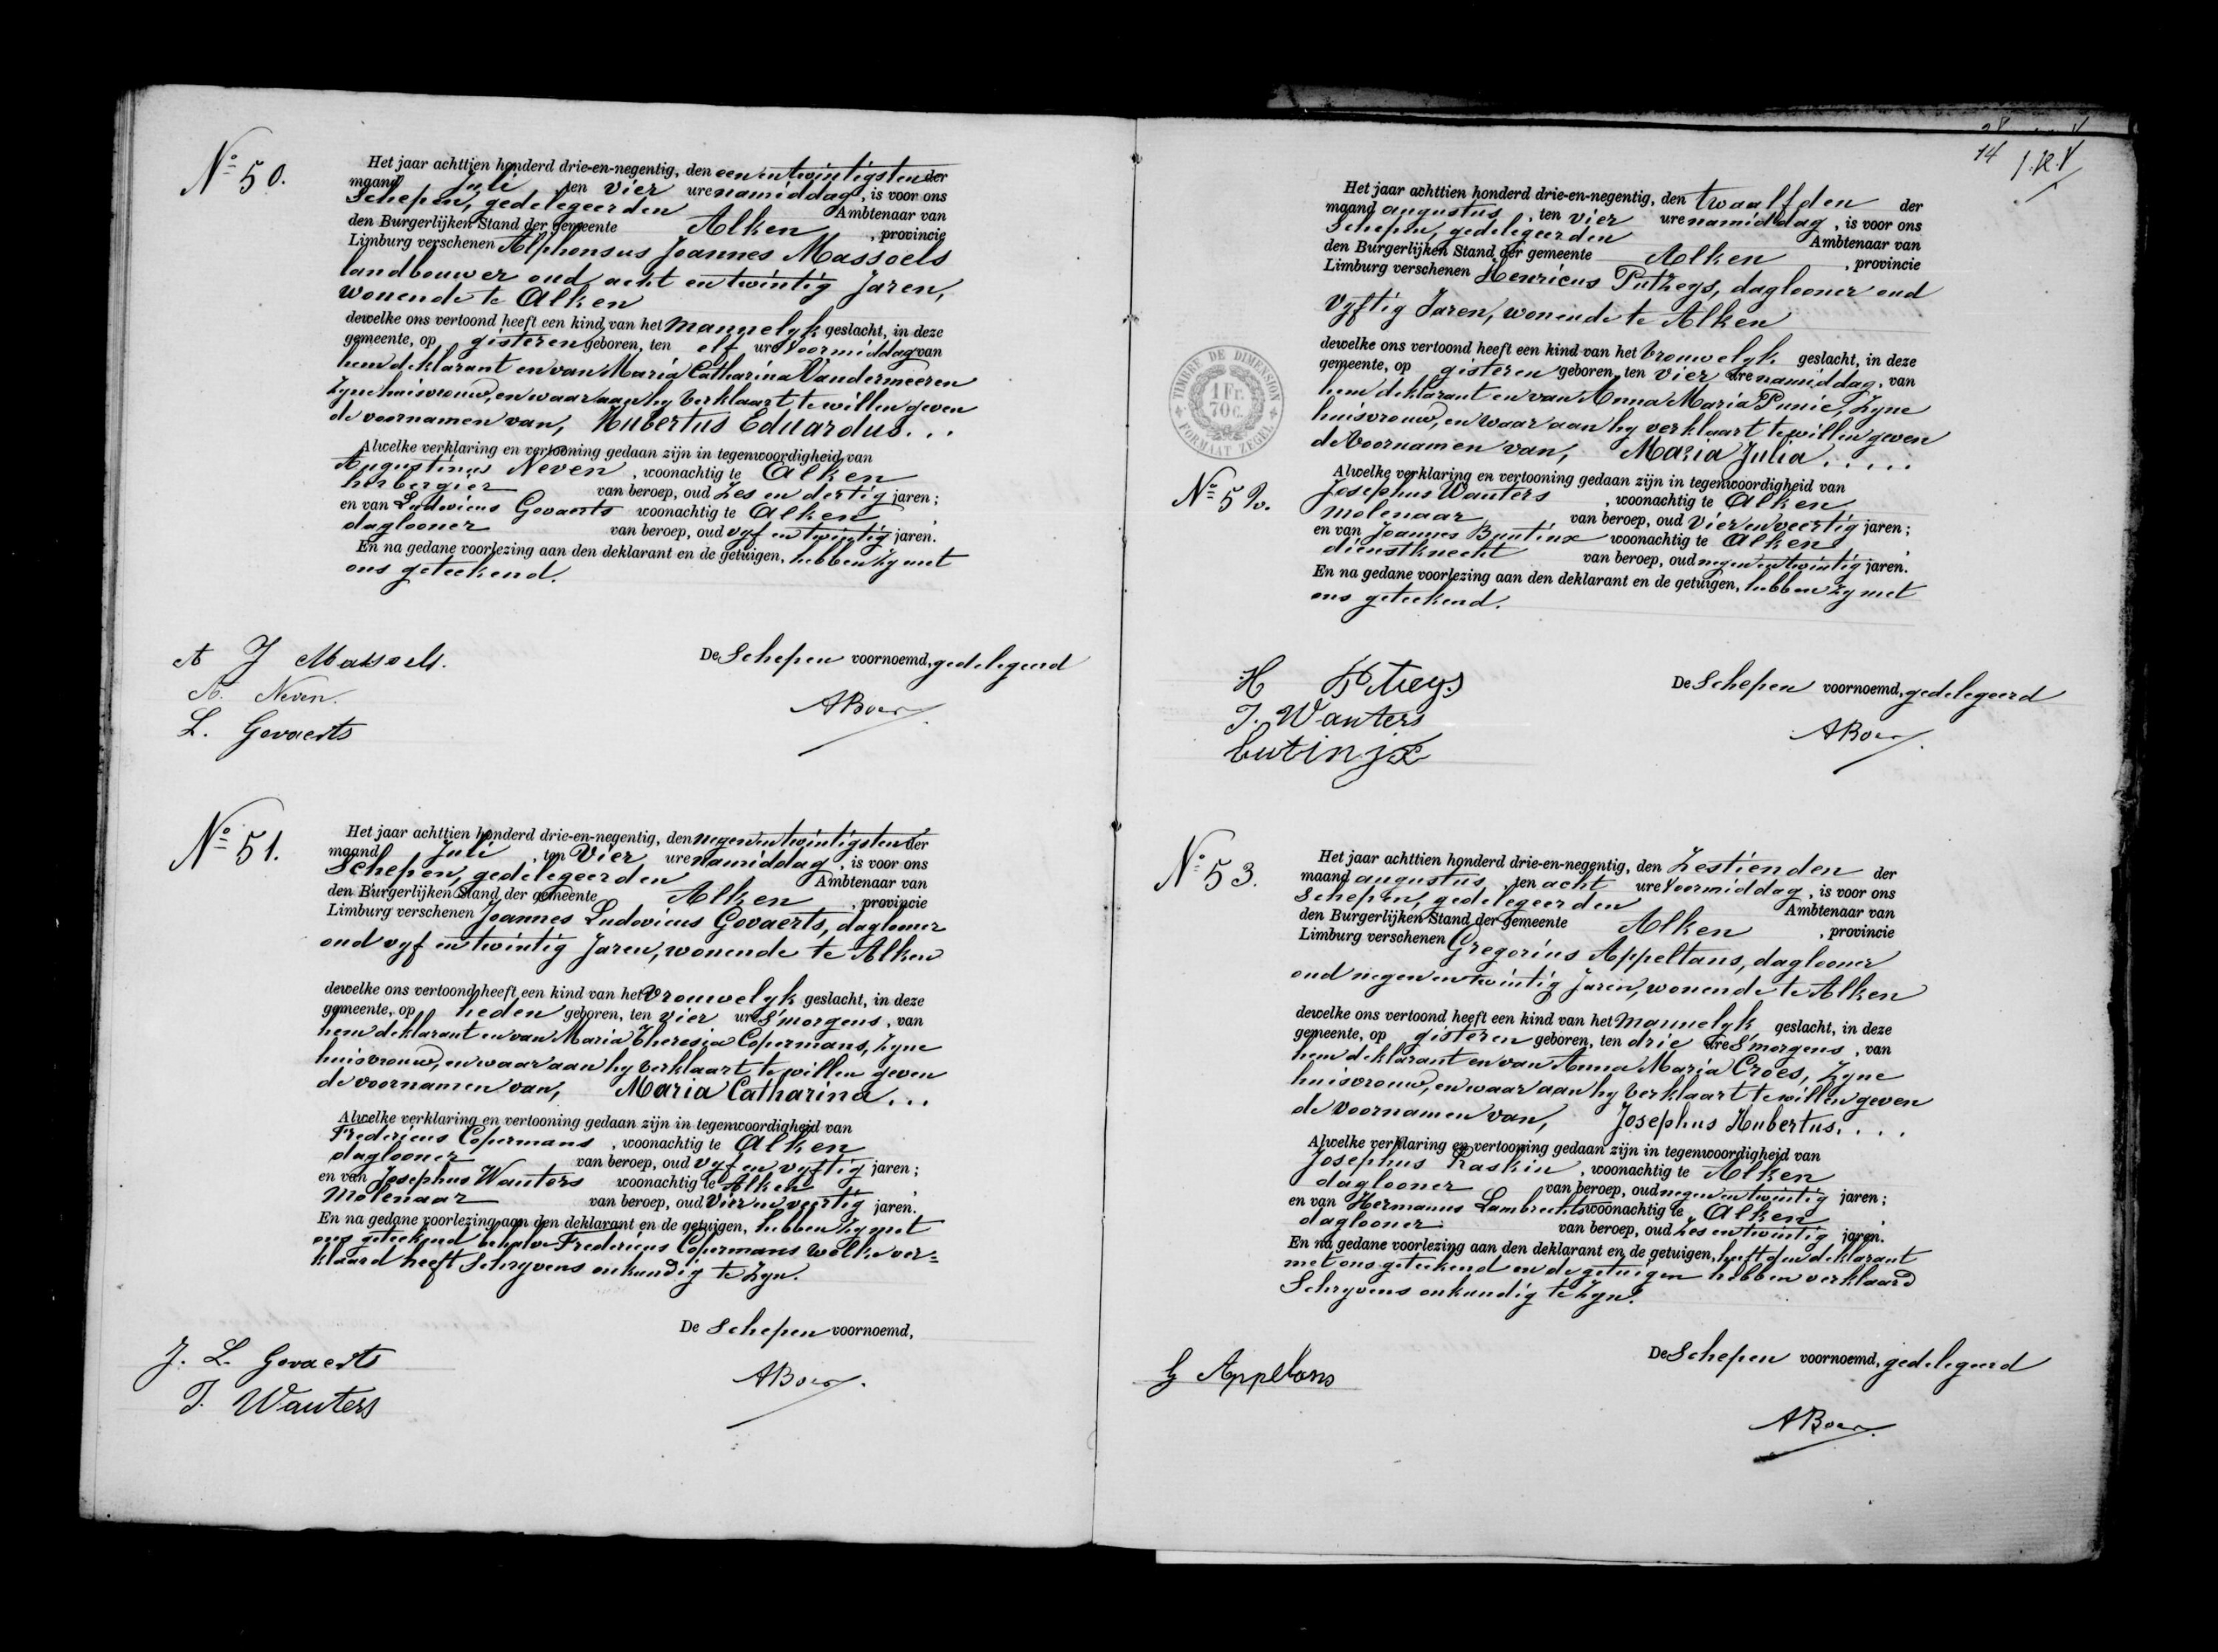 Nº 50.
Het jaar achttien honderd drie-en-negentig, den een en twintigsten der
maand Juli ten vier ure namiddag, is voor ons
Schepen, gedelegeerden Ambtenaar van
den Burgerlijken Stand der gemeente Alken, provincie
Limburg verschenen Alphonsus Joannes Massoels
landbouwer oud acht en twintig Jaren,
wonende te Alken
dewelke ons vertoond heeft een kind van het mannelyk geslacht, in deze
gemeente, op gisteren geboren, ten elf ure voormiddag van
hem deklarant en van Maria Catharina Vandermeeren
zyne huisvrouw, en waar aan hy verklaart te willen geven
de voornamen van, Hubertus Eduardus...
Alwelke verklaring en vertooning gedaan zijn in tegenwoordigheid van
Augustinus Neven, woonachtig te Alken
herbergier van beroep, oud zes en dertig jaren;
en van Ludovicus Govaerts woonachtig te Alken,
daglooner van beroep, oud vyf en twintig jaren.
En na gedane voorlezing aan den deklarant en de getuigen, hebben zy met
ons geteekend.
A J Massoels.
De Schepen voornoemd, gedelegeerd
A. Neven.
ABoes
L. Govaerts
Nº 51.
Het jaar achttien honderd drie-en-negentig, den negen en twintigsten der
maand Juli, ten Vier ure namiddag, is voor ons
Schepen, gedelegeerden Ambtenaar van
den Burgerlijken Stand der gemeente Alken, provincie
Limburg verschenen Joannes Ludovicus Govaerts, daglooner
oud vyf en twintig Jaren, wonende te Alken
dewelke ons vertoond heeft een kind van het Vrouwelyk geslacht, in deze
gemeente, op heden geboren, ten vier ure S'morgens, van
hem deklarant en van Maria Theresia Copermans, zyne
huisvrouw, en waar aan hy verklaart te willen geven
de voornamen van, Maria Catharina...
Alwelke verklaring en vertooning gedaan zijn in tegenwoordigheid van
Fredericus Copermans, woonachtig te Alken
daglooner van beroep, oud vyf en vyftig jaren;
en van Josephus Wauters woonachtig te Alken,
Molenaar van beroep, oud Vier en veertig jaren.
En na gedane voorlezing aan den deklarant en de getuigen, hebben zy met
ons geteekend behalve Fredericus Copermans welke ver=
klaard heeft Schryvens onkundig te zyn.
De Schepen voornoemd,
J. L. Govaerts
ABoes.
J. Wauters
14
Het jaar achttien honderd drie-en-negentig, den twaalfden der
maand augustus, ten vier ure namiddag, is voor ons
Schepen, gedelegeerden Ambtenaar van
den Burgerlijken Stand der gemeente Alken, provincie
Limburg verschenen Henricus Putzeys, daglooner oud
Vyftig Jaren, wonende te Alken
dewelke ons vertoond heeft een kind van het Vrouwelyk geslacht, in deze
gemeente, op gisteren geboren, ten vier ure namiddag, van
hem deklarant en van Anna Maria Punie, zyne
huisvrouw, en waar aan hy verklaart te willen geven
de Voornamen van, Maria Julia.....
TIMBRE DE DIMENSION
1 Fr.
70 c.
FORMAAT ZEGEL
Nº 52.
Alwelke verklaring en vertooning gedaan zijn in tegenwoordigheid van
Josephus Wauters, woonachtig te Alken
Molenaar van beroep, oud Vier en veertig jaren;
en van Joannes Buntinx woonachtig te Alken,
dienstknecht van beroep, oud negen en twintig jaren.
En na gedane voorlezing aan den deklarant en de getuigen, hebben zy met
ons geteekend.
De Schepen voornoemd, gedelegeerd
J. Wauters
ABoes.
Nº 53.
Het jaar achttien honderd drie-en-negentig, den Zestienden der
maand augustus, ten acht ure Voormiddag, is voor ons
Schepen, gedelegeerden Ambtenaar van
den Burgerlijken Stand der gemeente Alken, provincie
Limburg verschenen Gregorius Appeltans, daglooner
oud negen en twintig Jaren, wonende te Alken
dewelke ons vertoond heeft een kind van het mannelyk geslacht, in deze
gemeente, op gisteren geboren, ten drie ure S'morgens, van
hem deklarant en van Anna Maria Croes, zyne
huisvrouw, en waar aan hy verklaart te willen geven
de Voornamen van, Josephus Hubertus....
Alwelke verklaring en vertooning gedaan zijn in tegenwoordigheid van
Josephus Raskin, woonachtig te Alken
daglooner van beroep, oud negen en twintig jaren;
en van Hermanus Lambrechts woonachtig te Alken,
daglooner van beroep, oud Zes en twintig jaren.
En na gedane voorlezing aan den deklarant en de getuigen, heeft den deklarant
met ons geteekend en de getuigen hebben verklaard
Schryvens onkundig te zyn.
De Schepen voornoemd, gedelegeerd
G Appeltans
ABoes.